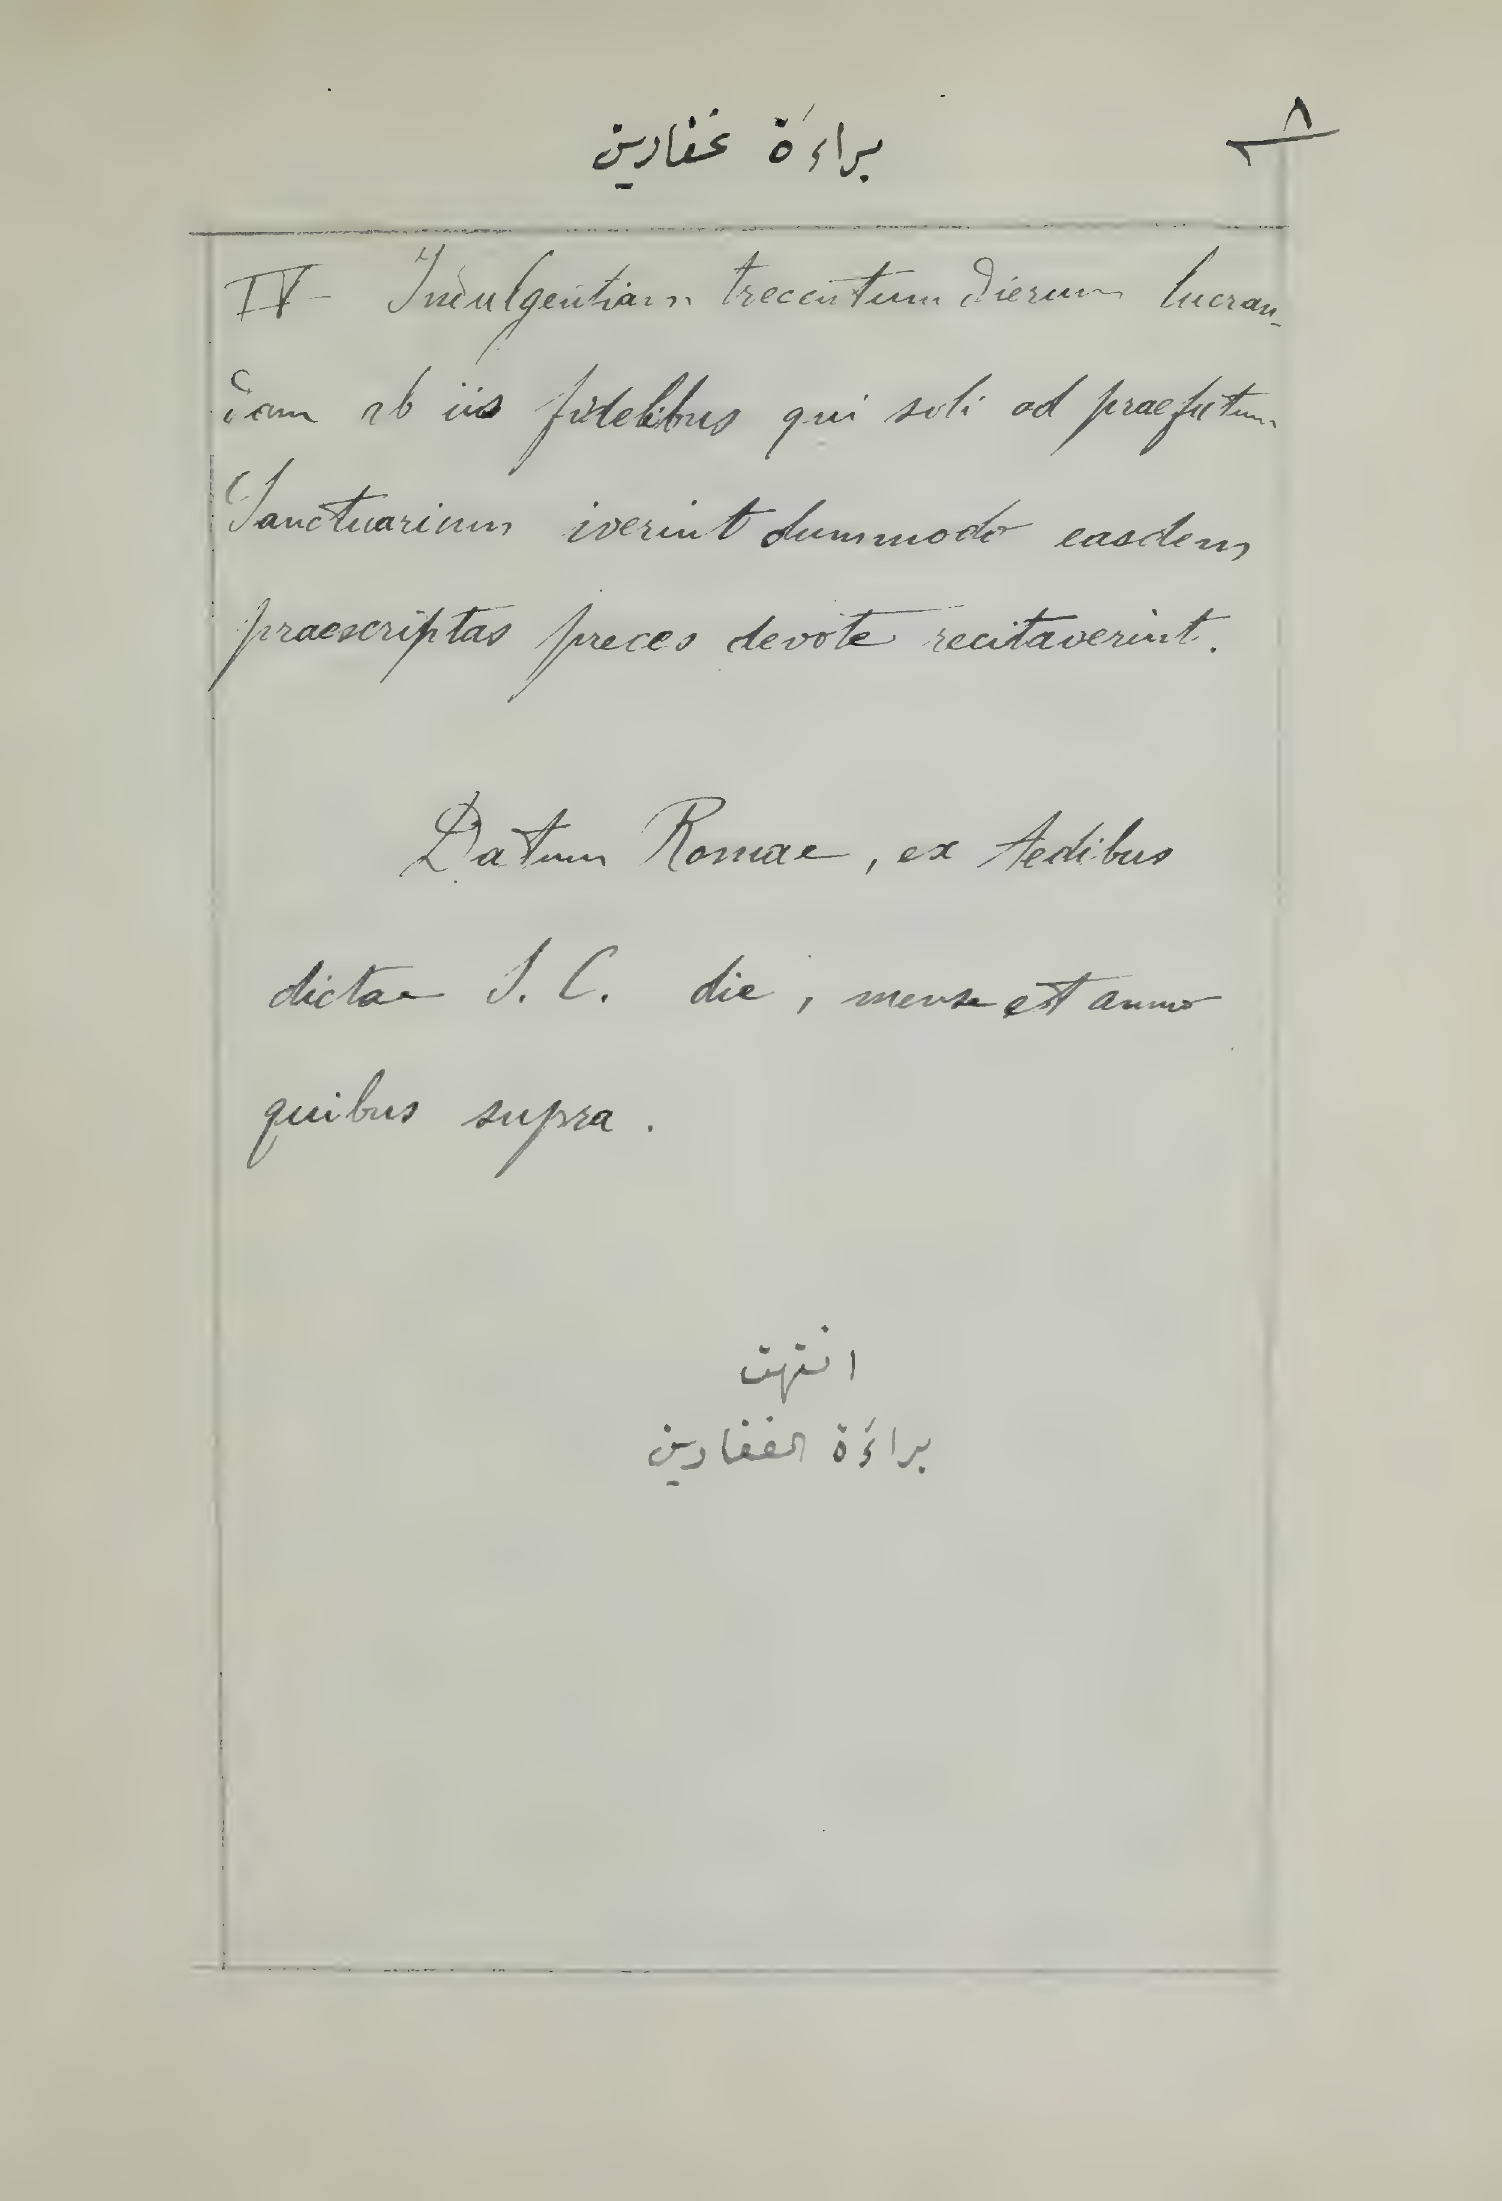 براءَة غفارين
٨
IV - Indulgentiam trecentum dierum lucran-
dam ab iis fidelibus qui soli ad praefatum
Sanctuarium iverint dummodo easdem
praescriptas preces devote recitaverint.
Datum Romae, ex Aedibus
dictae S. C. die, mense et anno
quibus supra.
انتهت
براءَة الغفارين